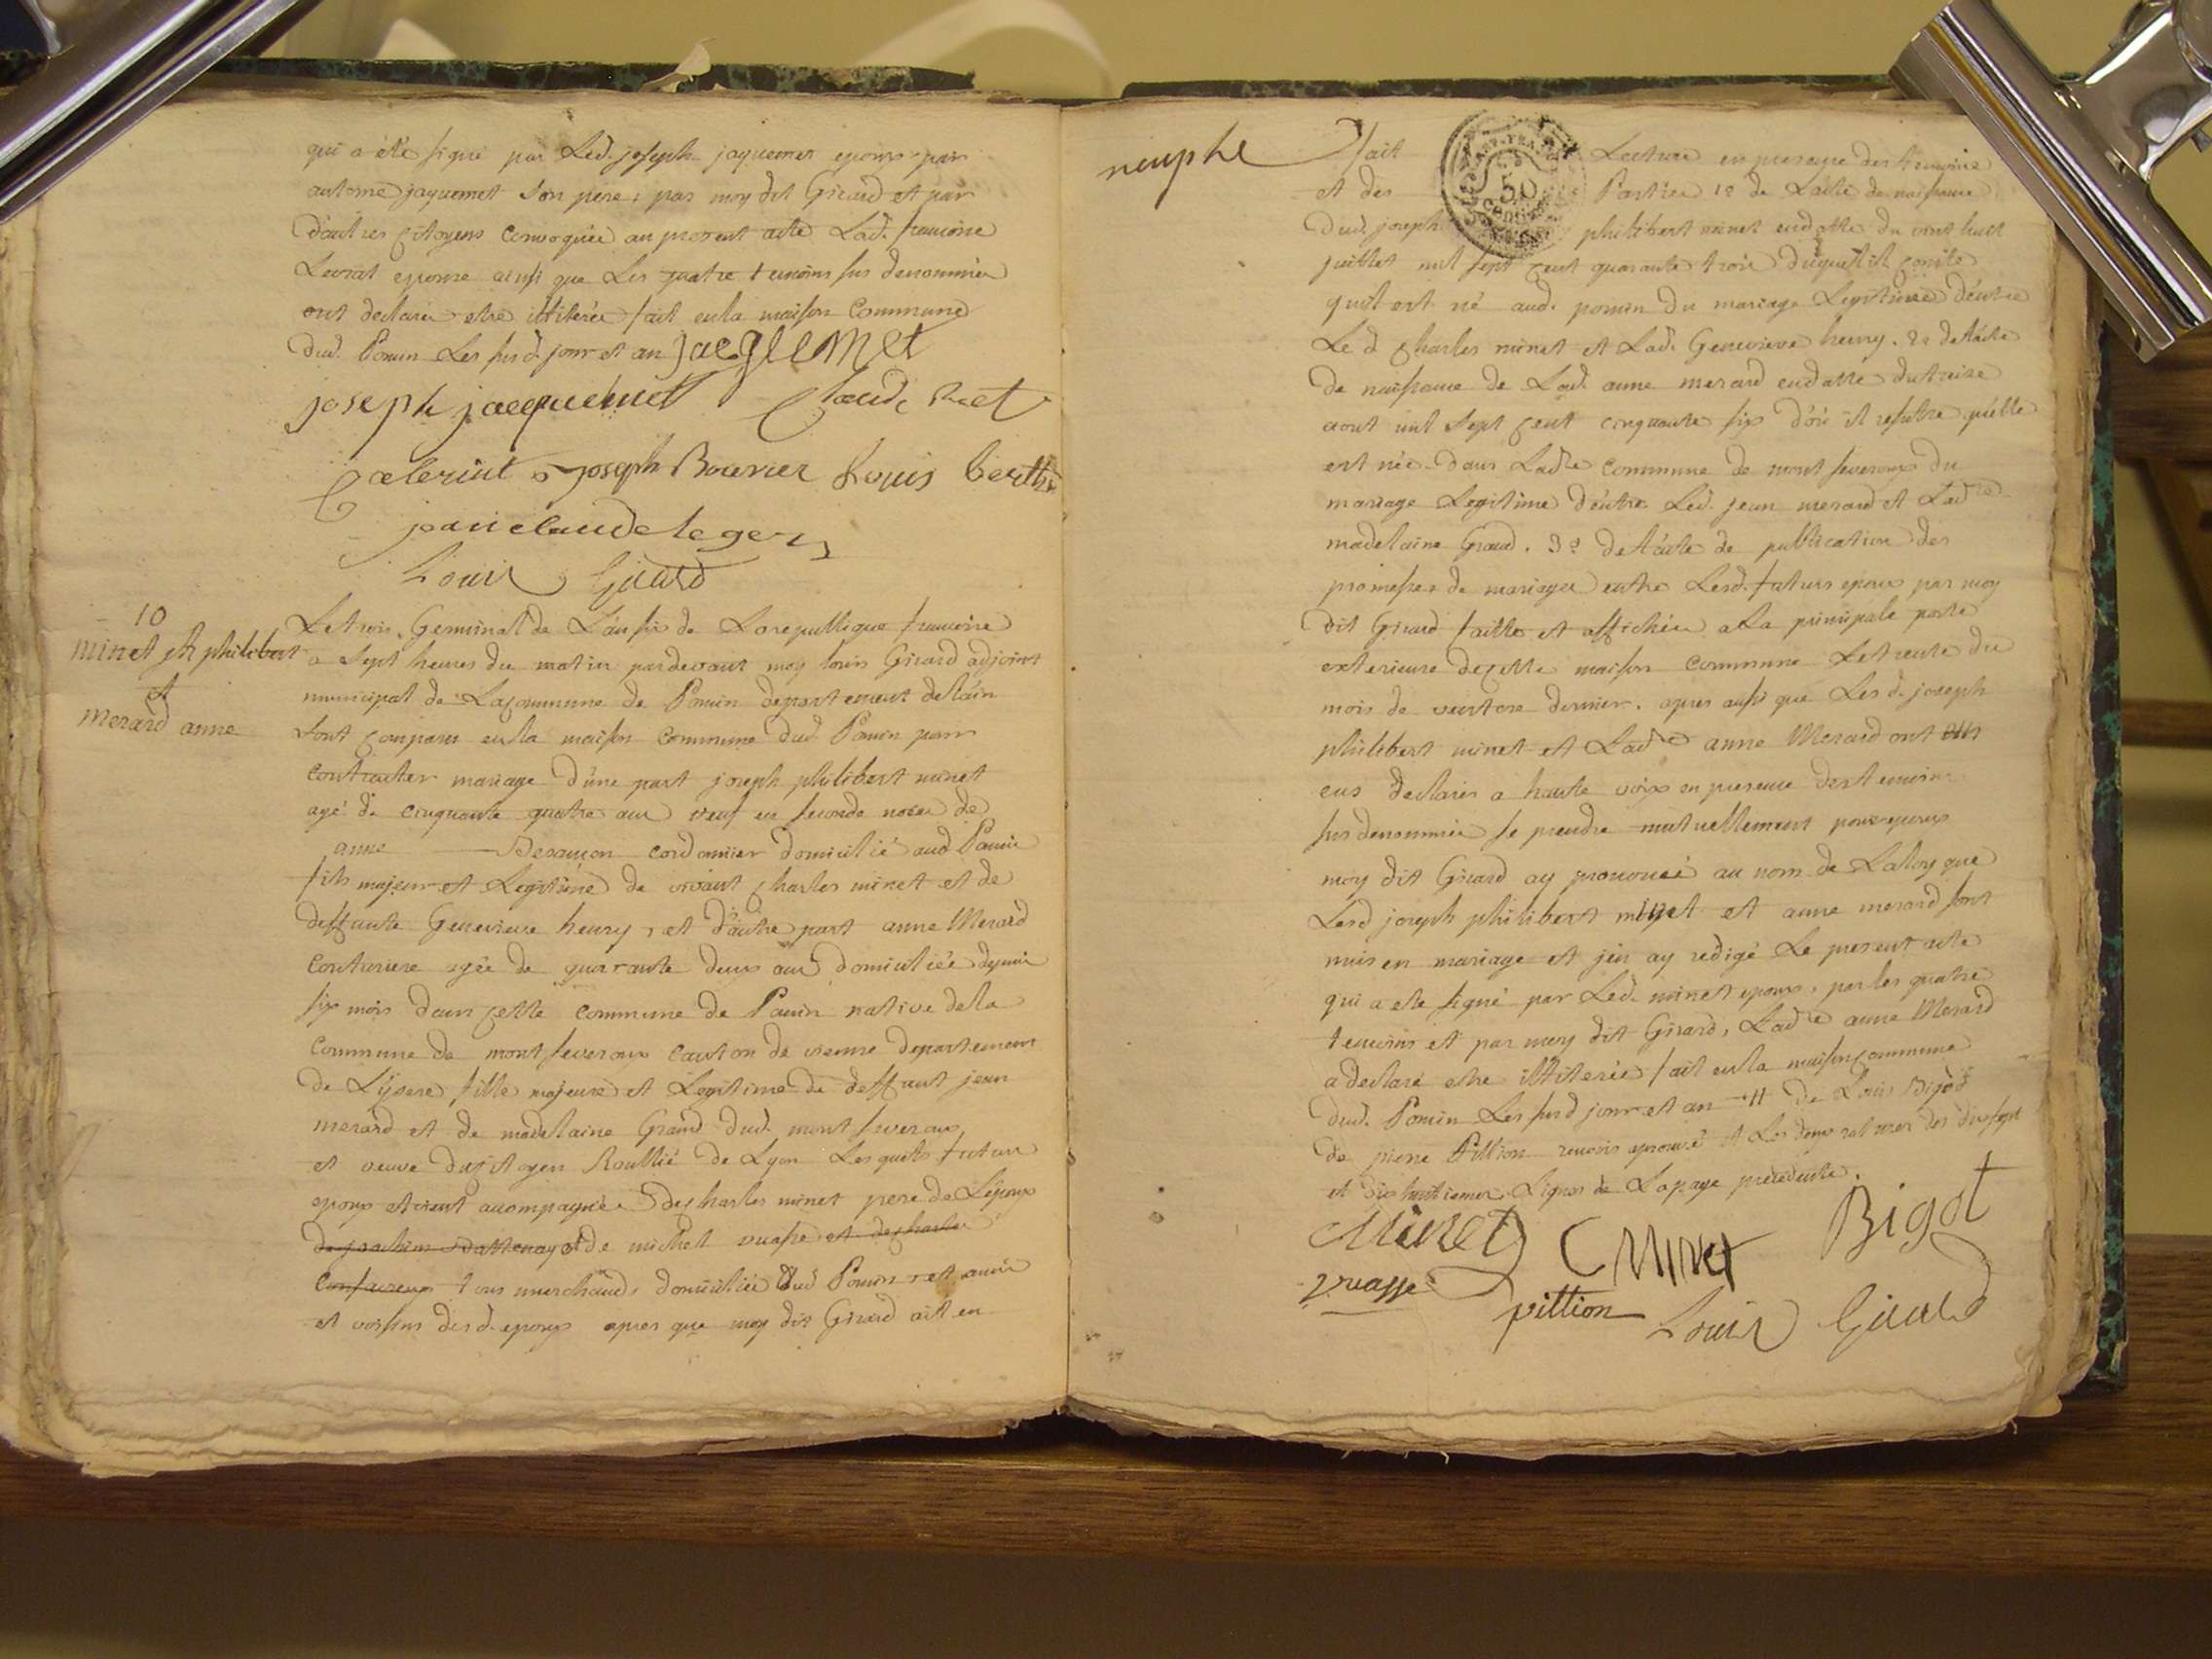 qui a été signé par Led. joseph jaquemet epoux par
antoine jaquemet son pere, par moy dit Girard et par
d'autres Citoyens convoquée au present acte Lad. francoise
Levrat epouse ainsi que Les quatre temoins sus denommée
ont declaree etre illiterée fait en la maison Commune
dud. Poncin Les susd. jour et an jacquemet
joseph jacquemet Claude
joseph Bouvier Louis berthe
jean claude leger
Louis Girard
10
minet j.h philibert
et
merard anne
Le trois Germinal de L'an six de La republique francoise
a sept heures du matin pardevant moy louis Girard adjoint
municipal de La commune de Poncin departement de l'ain
sont comparus en la maison commune dud. Poncin pour
contracter mariage d'une part joseph philibert minet
agé de cinquante quatre ans veuf en seconde noces de
anne Besançon cordonnier domicilié aud Poncin
fils majeur et Legitime de vivant charles minet et de
deffunte Genevieve henry, et d'autre part anne Merard
Couturiere agée de quarante deux ans domiciliée depuis
six mois dans cette commune de Poncin native de la
Commune de mont severoux canton de vienne departement
de L'isere fille majeure et Legitime de deffunt jean
merard et de madelaine Graud dud. mont severoux
et veuve du citoyen Roullié de Lyon Lesquels futurs
epoux etoient accompagnée de charles minet pere de L'epoux
de joachim et de michel vuasse et de charles
tous marchands domiciliée aud Poncin et amis
et voisins desd. epoux apres que moy dit Girard ait en
neuphe
fait Lecture en presence des temoins
et des Parties 1º de L'acte de naissance
dud. joseph philibert minet en datte du vint huit
juillet mil sept cent quarante trois duquel il conste
qu'il est né aud. poncin du mariage Legitime d'entre
Le d charles minet et Lad. Genevieve henry. 2º de l'acte
de naissance de Lad. anne merard en datte du treize
aout mil sept cent cinquante six d'où il resulte qu'elle
est née dans Ladte commune de mont severoux du
mariage Legitime d'entre Led. jean merard et Ladte
madelaine Graud. 3º de l'acte de publication des
promesses de mariages entre Lesd. futurs epoux par moy
dit Girard faitte et affichée a La principale porte
exterieure de cette maison commune Le trente du
mois de ventose dernier. apres aussi que Les d. joseph
philibert minet et Ladte anne Merard ont
eus declarés a haute voix en presence des temoins
sus denommée se prendre mutuellement pour epoux
moy dit Girard ay prononcé au nom de La loy que
Lesd joseph philibert minet et anne merard sont
unis en mariage et j'en ay redigé Le present acte
qui a eté signé par Led. minet epoux, par les quatre
temoins et par moy dit Girard, Ladte anne Merard
a declaré etre illiterée fait en la maison commune
dud. Poncin Les susd jour et an # De Louis Bigot
de pierre Pittion renvois aprouvé et Les deux ratures des dix sept
et dix huitiemes Lignes de La page precedente.
Minet C Minet Bigot
vuasse
pittion Louis Girard